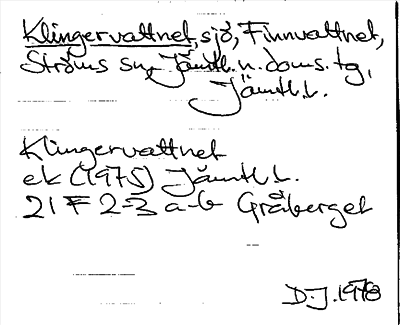 Klingervattnet, sjö, Finnvattnet,
Ströms sn, Jämtl. n. doms. tg,
Jämtl. l.
Klingervattnet
ek (1975) Jämtl. l.
21 F 2-3 a-b Gråberget
D.J. 1978